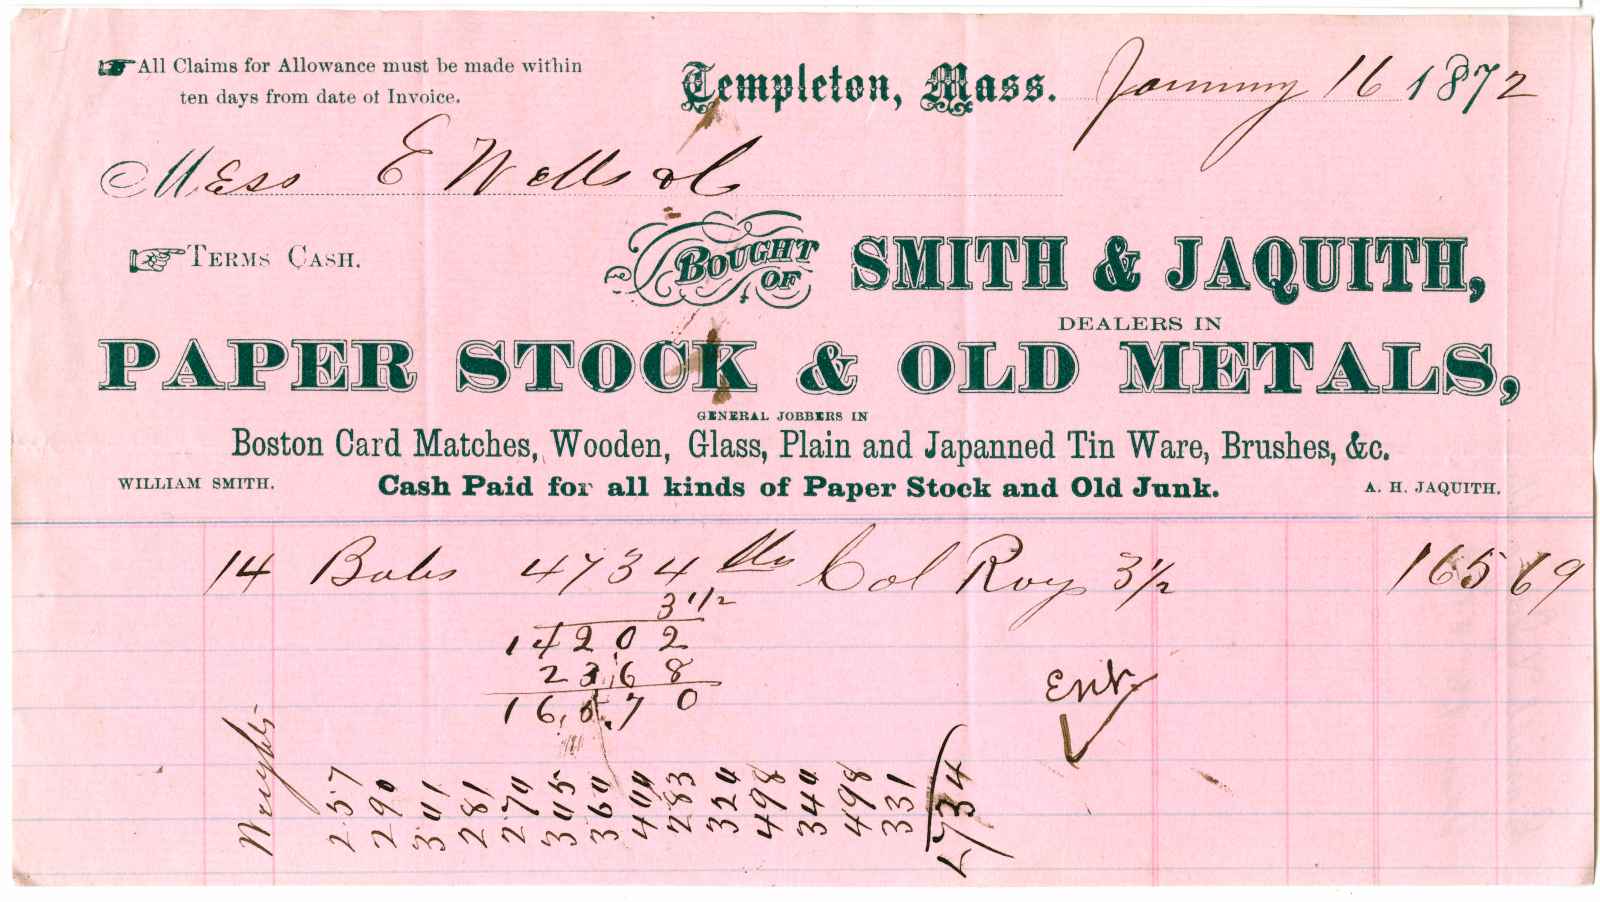 All Claims for Allowance must be made within
ten days from date of Invoice.
Templeton, Mass. January 16 1872
Mess E Wells & Co
TERMS CASH.
BOUGHT OF SMITH & JAQUITH,
DEALERS IN
PAPER STOCK & OLD METALS,
GENERAL JOBBERS IN
Boston Card Matches, Wooden, Glass, Plain and Japanned Tin Ware, Brushes, &c.
WILLIAM SMITH. Cash Paid for all kinds of Paper Stock and Old Junk. A. H. JAQUITH.
14 Bales 4734 lbs Col Rags 3½ 165 69
3 1/2
14202
2368
16570
Ent
Weights
257
290
341
281
274
345
364
444
283
324
498
344
498
331
4734